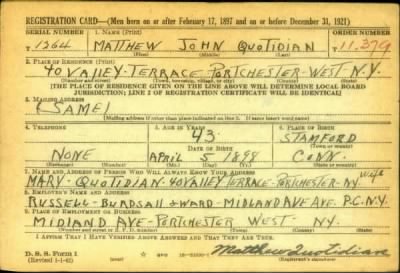 REGISTRATION CARD—(Men born on or after February 17, 1897 and on or before December 31, 1921)
SERIAL NUMBER 1. NAME (Print) ORDER NUMBER
T 1264 MATTHEW JOHN QUOTIDIAN T 11,379
(First) (Middle) (Last)
2. PLACE OF RESIDENCE (Print)
40 VALLEY-TERRACE-PORTCHESTER-WEST N.Y.
(Number and street) (Town, township, village, or city) (County) (State)
[THE PLACE OF RESIDENCE GIVEN ON THE LINE ABOVE WILL DETERMINE LOCAL BOARD
JURISDICTION; LINE 2 OF REGISTRATION CERTIFICATE WILL BE IDENTICAL]
3. MAILING ADDRESS
(SAME)
[Mailing address if other than place indicated on line 2. If same insert word same]
4. TELEPHONE 5. AGE IN YEARS 6. PLACE OF BIRTH
43 STAMFORD
DATE OF BIRTH (Town or county)
NONE APRIL 5 1898 CONN.
(Exchange) (Number) (Mo.) (Day) (Yr.) (State or country)
7. NAME AND ADDRESS OF PERSON WHO WILL ALWAYS KNOW YOUR ADDRESS
MARY-QUOTIDIAN-40 VALLEY TERRACE-PORTCHESTER-NY WIFE
8. EMPLOYER'S NAME AND ADDRESS
RUSSELL-BURDSALL & WARD-MIDLAND AVE AVE. P.C. N.Y.
9. PLACE OF EMPLOYMENT OR BUSINESS
MIDLAND AVE-PORTCHESTER WEST- NY.
(Number and street or R. F. D. number) (Town) (County) (State)
I AFFIRM THAT I HAVE VERIFIED ABOVE ANSWERS AND THAT THEY ARE TRUE.
D. S. S. Form 1
(Revised 1-1-42) (over) Matthew Quotidian
(Registrant's signature)